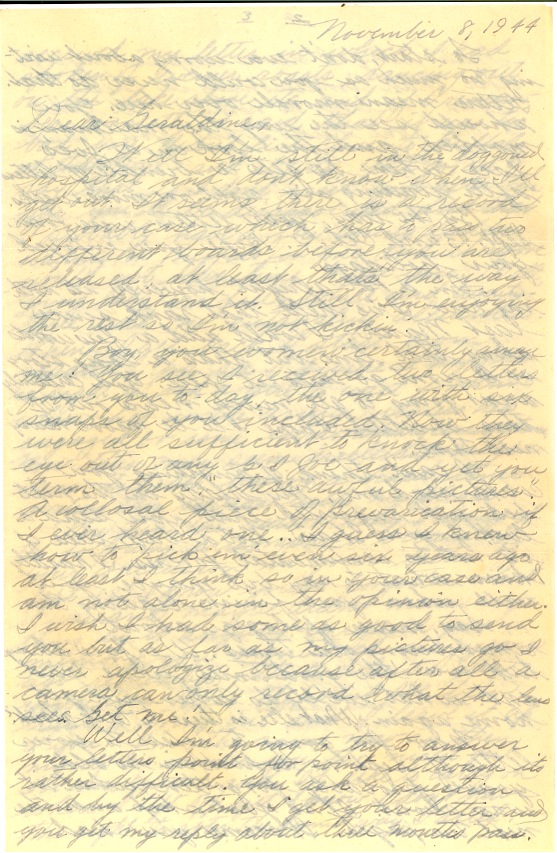 November 8, 1944
Dear Geraldine,
Well I'm still in the doggoned
hospital and don't know when I'll
get out. It seems there is a record
of your case which has to pass two
different boards before you are
released, at least that's the way
I understand it. Still I'm enjoying
the rest so I'm not kickin.
Boy you women certainly amaze
me. You see I received two letters
from you to-day the one with six
snaps of you included. Now they
were all sufficient to knock the
eye out of any G I Joe and yet you
term them "these awful pictures"
A collosal piece of prevarication if
I ever heard one.. I guess I knew
how to pick 'em even six years ago
at least I think so in your case and
am not alone in the opinion either.
I wish I had some as good to send
you but as far as my pictures go I
never apologize because after all a
camera can only record what the lens
sees. Get me!
Well I'm going to try to answer
your letters point for point although its
rather difficult. You ask a question
and by the time I get your letter and
you get my reply about three months pass.